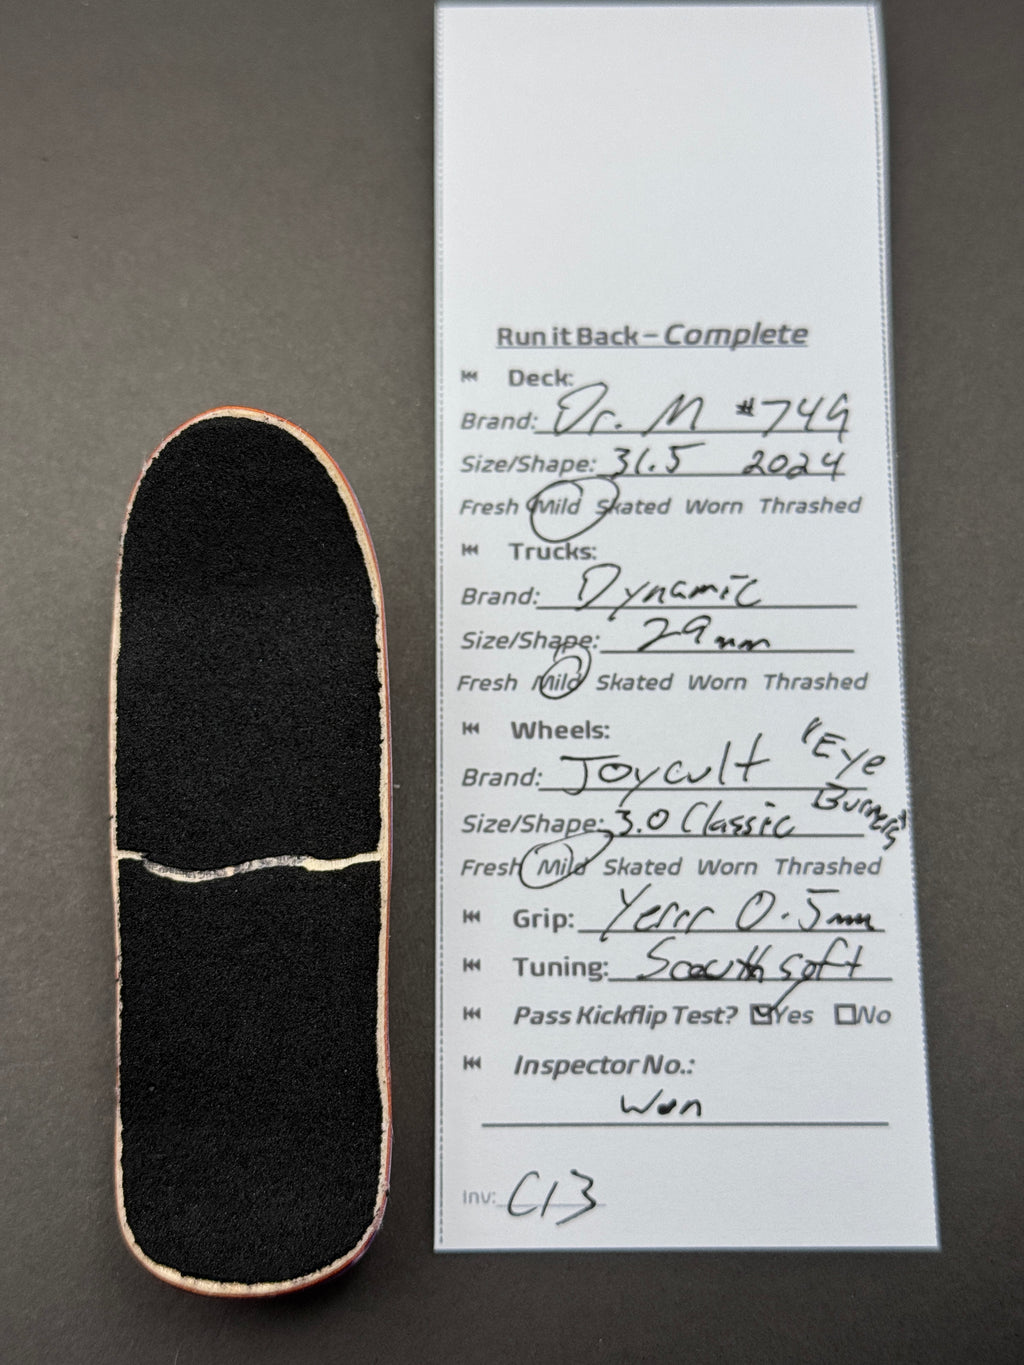 Run it Back – Complete
Deck:
Brand: Dr. M #749
Size/Shape: 31.5 2024
Fresh Mild Skated Worn Thrashed
Trucks:
Brand: Dynamic
Size/Shape: 29mm
Fresh Mild Skated Worn Thrashed
Wheels:
Brand: Joycult "Eye
Burners"
Size/Shape: 3.0 Classic
Fresh Mild Skated Worn Thrashed
Grip: Yerrr 0.5mm
Tuning: soft
Pass Kickflip Test? Yes No
Inspector No.:
Won
Inv: C13